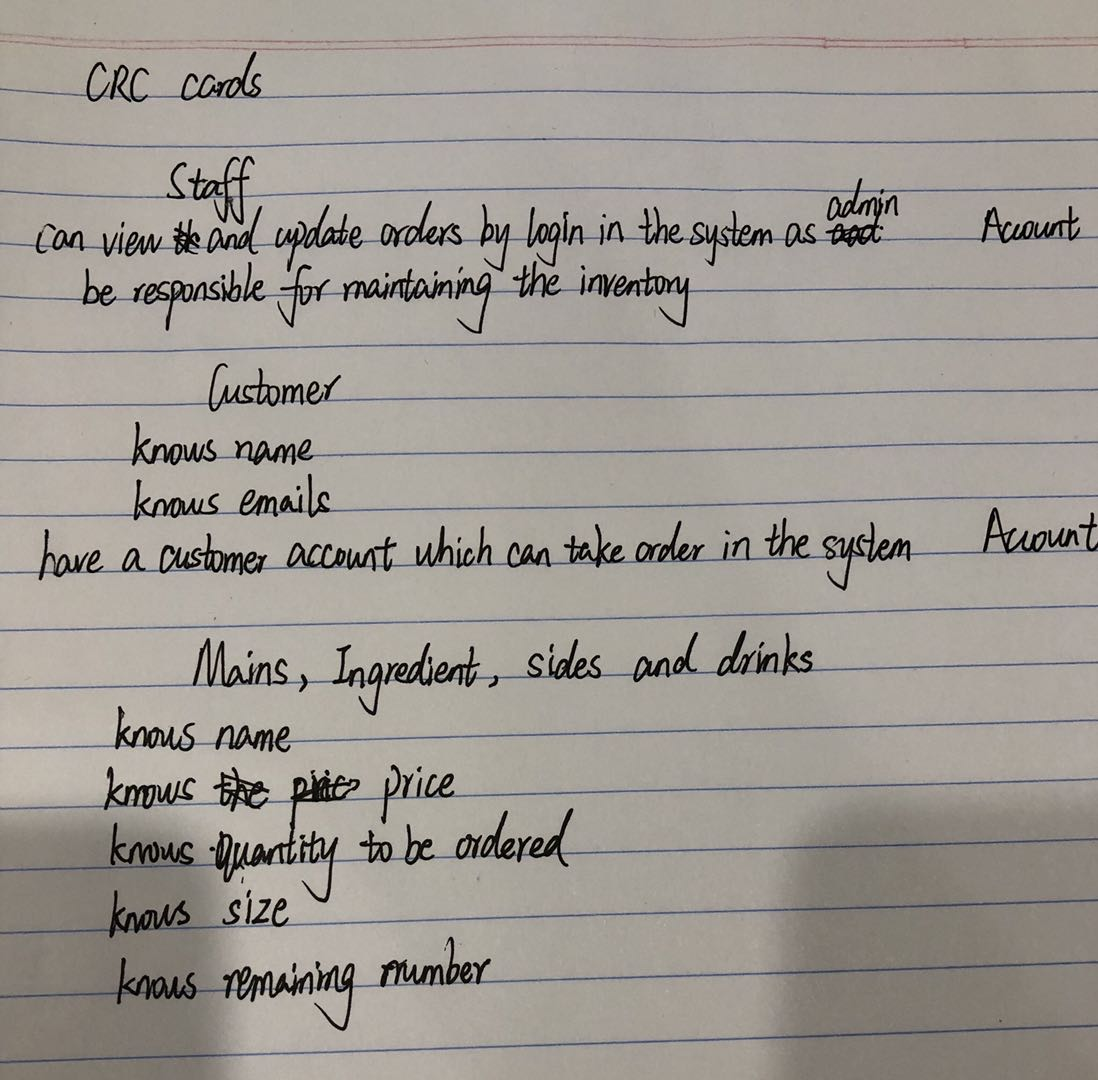 CRC cards
Staff
can view and update orders by login in the system as admin Account
be responsible for maintaining the inventory
Customer
knows name
knows emails
have a customer account which can take order in the system Account
Mains, Ingredient, sides and drinks
knows name
knows the price
knows quantity to be ordered
knows size
knows remaining number